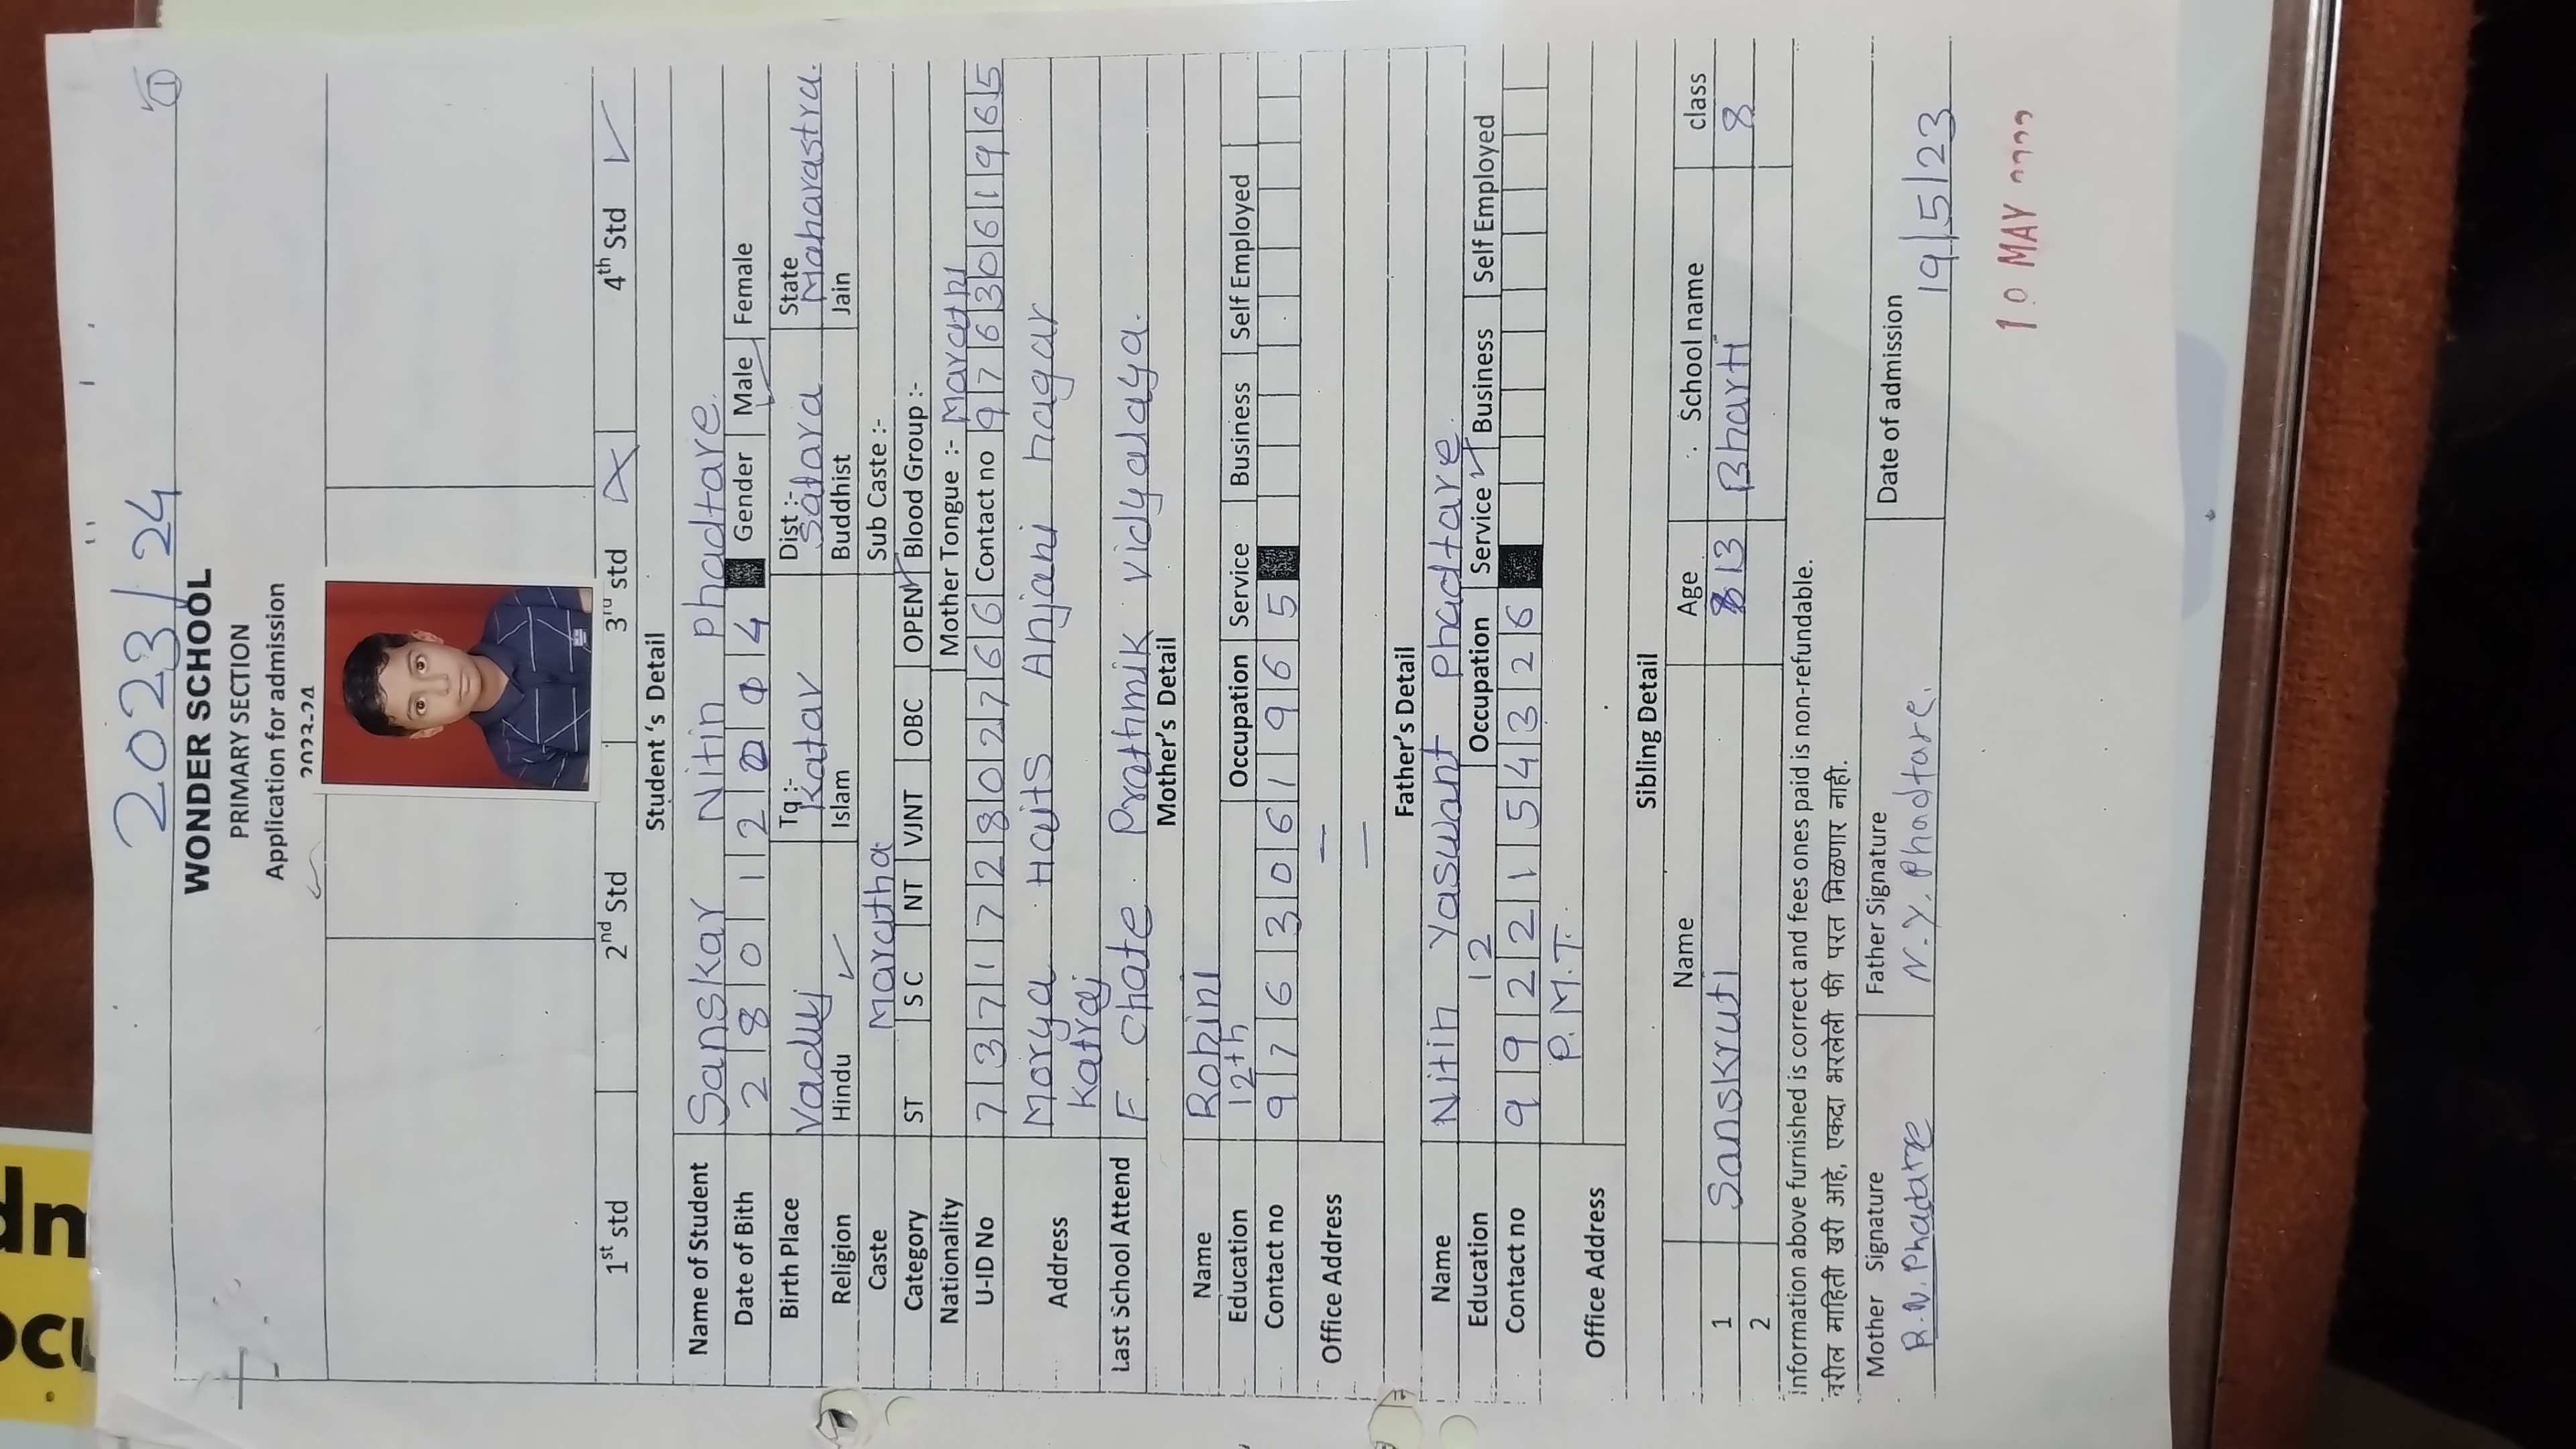 2023/24
WONDER SCHOOL
PRIMARY SECTION
Application for admission
2023-24
1st std 2nd Std 3rd std 4th Std
Student 's Detail
Name of Student Sanskar Nitin Phadtare.
Date of Bith 2 8 0 1 2 0 0 4 Gender Male Female
Birth Place Vaduj Tq :- Katav Dist :- Satara State Maharastra.
Religion Hindu Islam Buddhist Jain
Caste Maratha Sub Caste :-
Category ST S C NT VJNT OBC OPEN Blood Group :-
Nationality Mother Tongue :- Marathi
U-ID No 7 3 7 1 7 2 8 0 2 7 6 6 Contact no 9 7 6 3 0 6 1 9 6 5
Address Morya Haits Anjani nagar
Katraj
Last School Attend F Chate Prathmik Vidyalaya.
Mother's Detail
Name Rohini
Education 12th Occupation Service Business Self Employed
Contact no 9 7 6 3 0 6 1 9 6 5
Office Address
Father's Detail
Name Nitin Yaswant Phadtare.
Education 12 Occupation Service Business Self Employed
Contact no 9 9 2 2 1 5 4 3 2 6
P.M.T.
Office Address
Sibling Detail
Name Age School name class
1 Sanskruti 13 Bharti 8
2
Information above furnished is correct and fees ones paid is non-refundable.
वरील माहिती खरी आहे, एकदा भरलेली फी परत मिळणार नाही.
Mother Signature Father Signature Date of admission
R.N.Phadtare N.Y.Phadtare. 19/5/23
10 MAY